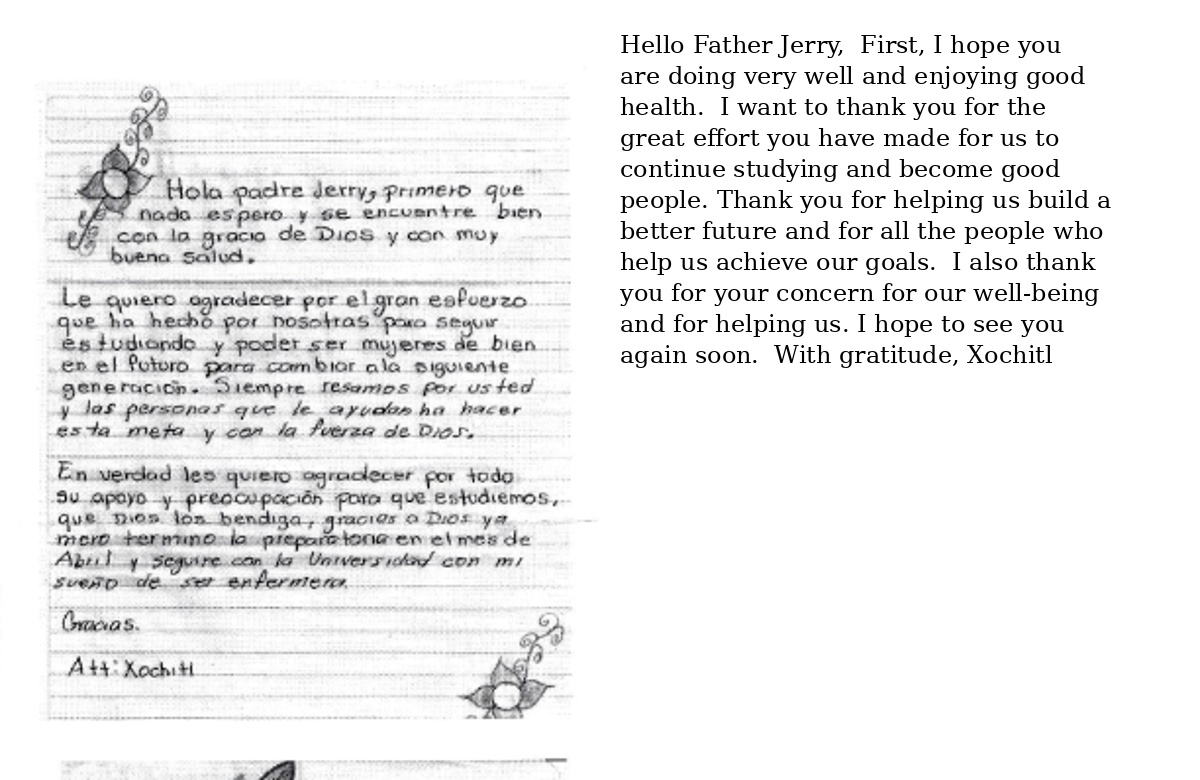 Hola padre Jerry, primero que
nada espero y se encuentre bien
con la gracia de Dios y con muy
buena salud.
Le quiero agradecer por el gran esfuerzo
que ha hecho por nosotras para seguir
estudiando y poder ser mujeres de bien
en el futuro para cambiar ala siguiente
generación. Siempre resamos por usted
y las personas que le ayudan ha hacer
esta meta y con la fuerza de Dios.
En verdad les quiero agradecer por todo
su apoyo y preocupación para que estudiemos,
que Dios los bendiga, gracias a Dios ya
mero termino la preparatoria en el mes de
Abril y seguire con la Universidad con mi
sueño de ser enfermera.
Gracias.
Att: Xochitl
Hello Father Jerry,  First, I hope you
are doing very well and enjoying good
health.  I want to thank you for the
great effort you have made for us to
continue studying and become good
people. Thank you for helping us build a
better future and for all the people who
help us achieve our goals.  I also thank
you for your concern for our well-being
and for helping us. I hope to see you
again soon.  With gratitude, Xochitl